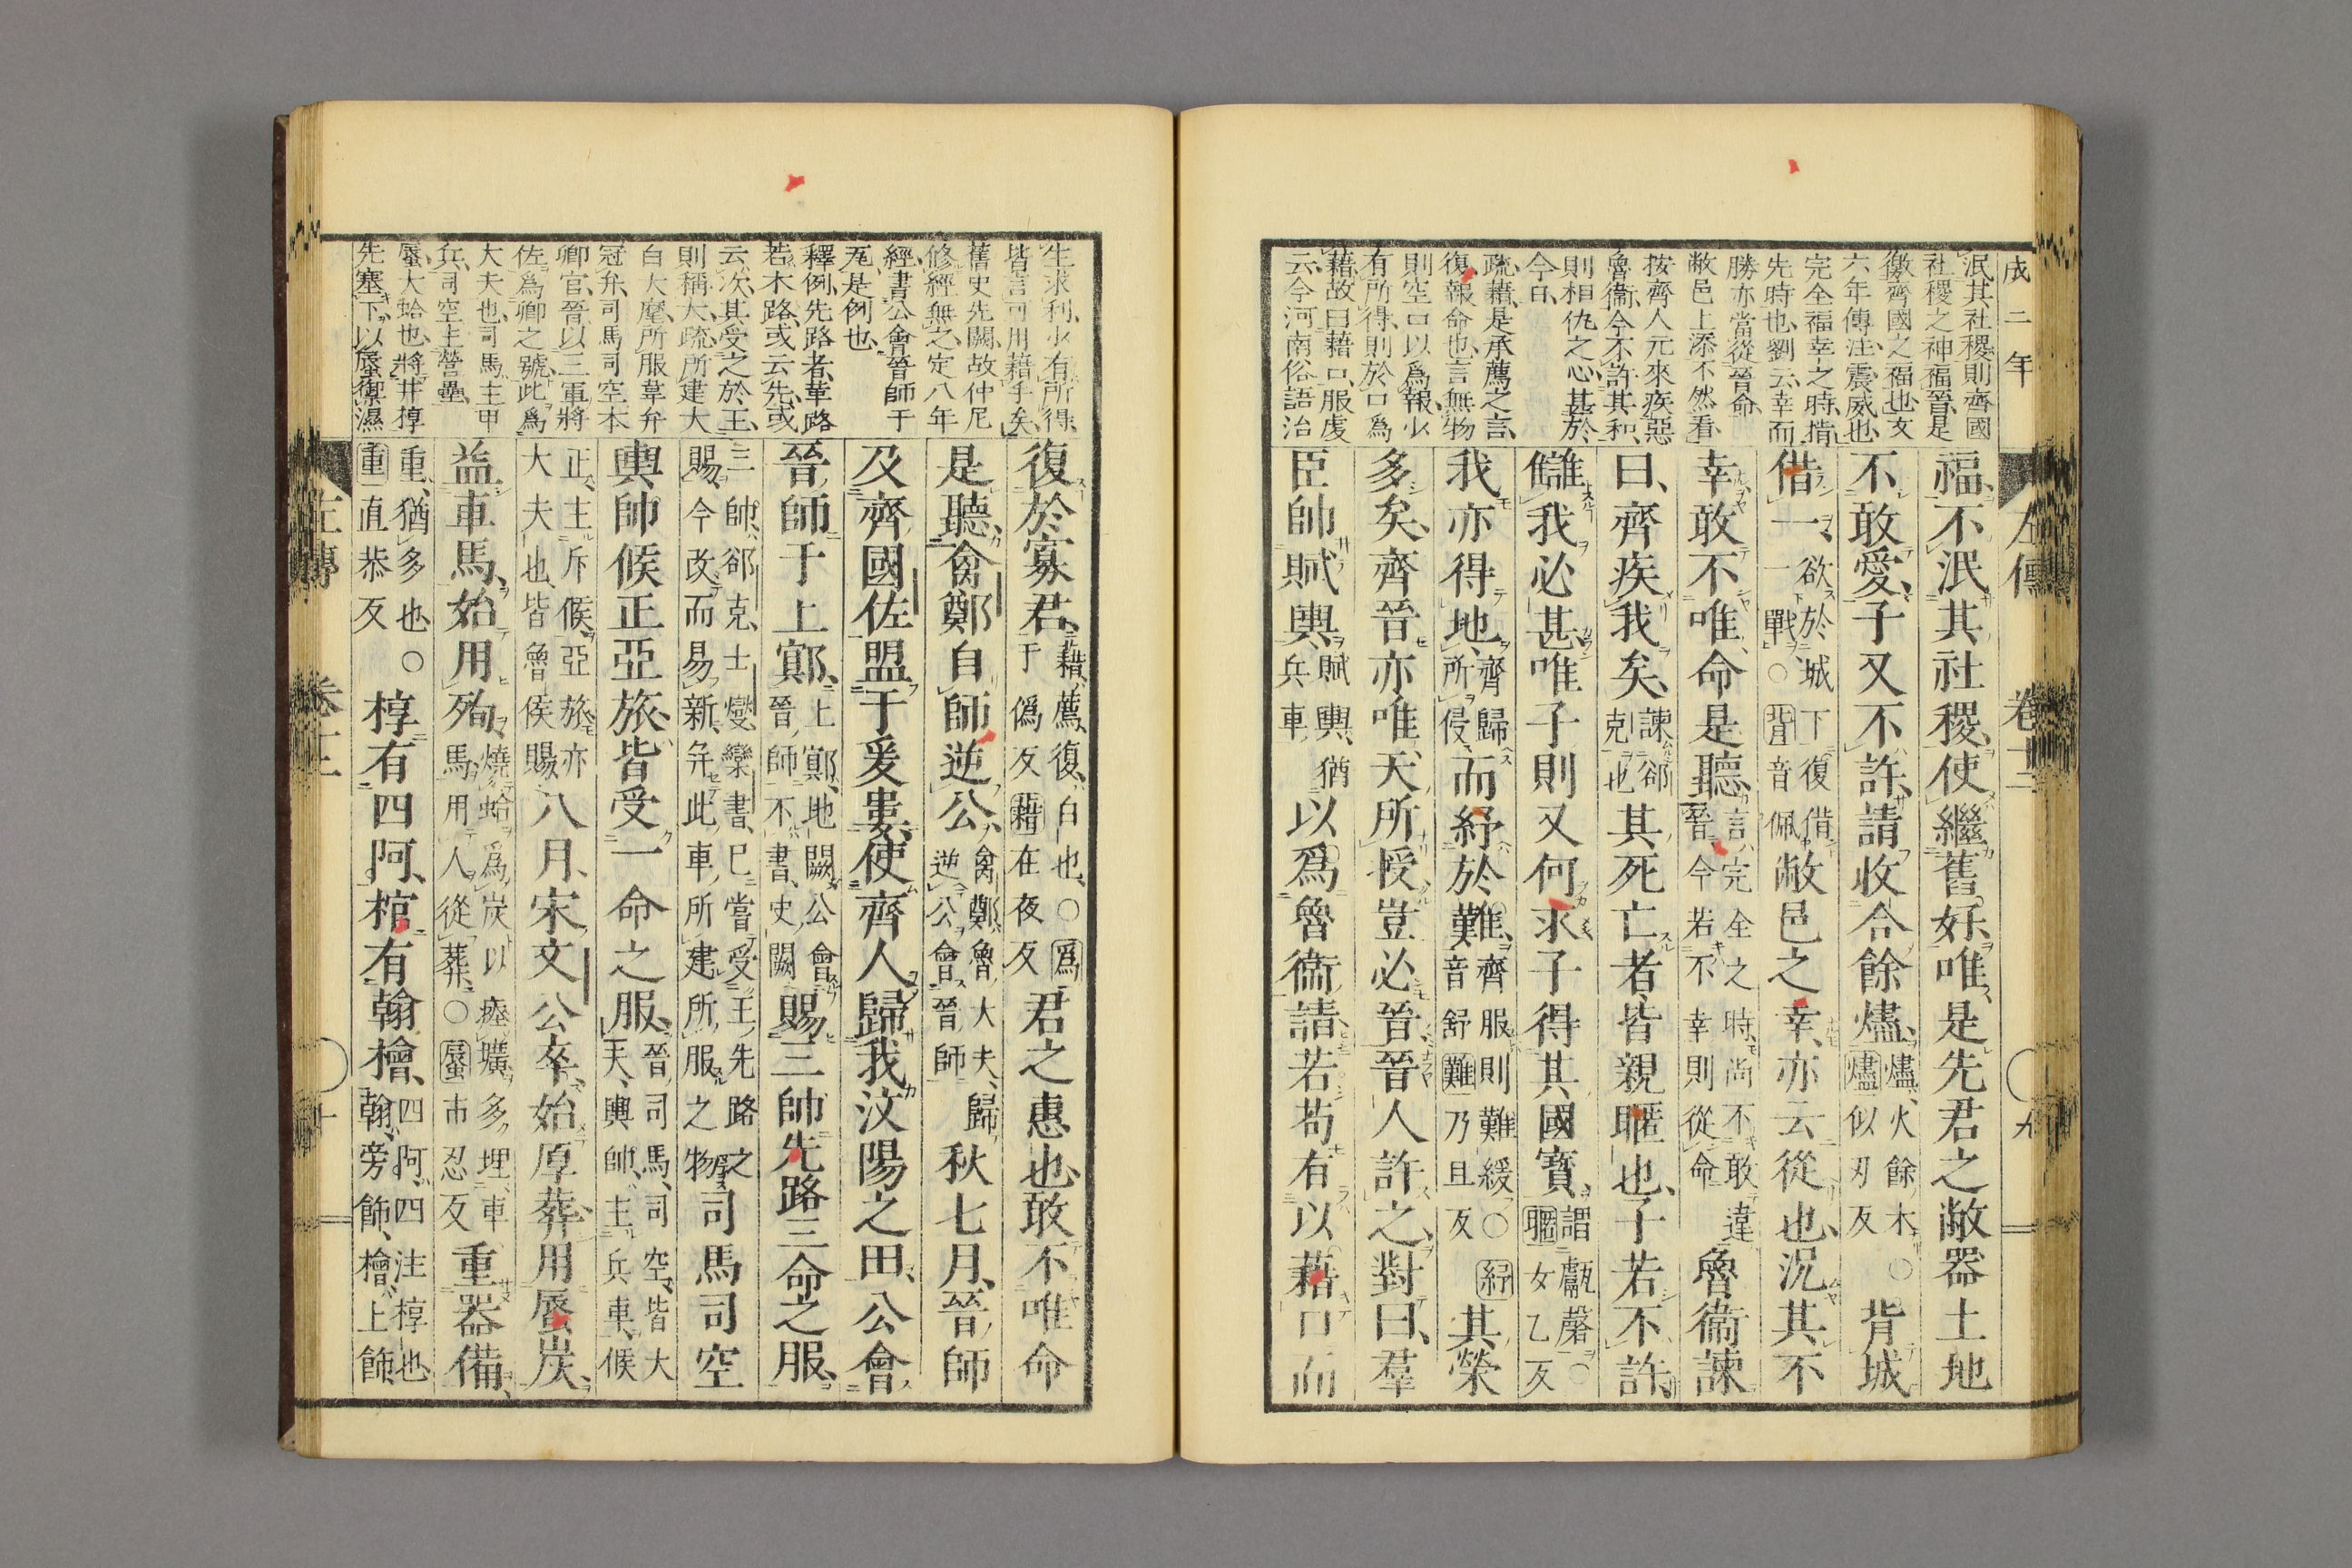 成二年
泯其社稷則齊國
社稷之神福晉是
徼齊國之福也女
六年傳注震威也
完全福幸之時指
先時也劉云幸而
勝亦當從晉命
敝邑上添不然看
按齊人元來疾惡
魯衞今不許其和
則相仇之心甚於
今日
疏藉是承薦之言
復報命也言無物
則空口以爲報少
有所得則於口爲
藉故曰藉口服虔
云今河南俗語治
左傳 卷十二 九
福不泯其社稷使繼舊好唯是先君之敝器土地
不敢愛子又不許請收合餘燼燼火餘木○燼似刃反背城
借一欲於城下復借一戰○背音佩敝邑之幸亦云從也況其不
幸敢不唯命是聽言完全之時尚不敢違晉今若不幸則從命魯衞諫
曰齊疾我矣諫郤克也其死亡者皆親暱也子若不許
讎我必甚唯子則又何求子得其國寶謂甗磬○暱女乙反
我亦得地齊歸所侵而紓於難齊服則難緩○紓音舒難乃且反其榮
多矣齊晉亦唯天所授豈必晉晉人許之對曰羣
臣帥賦輿賦輿猶兵車以爲魯衞請若苟有以藉口而
生求利少有所得
皆言可用藉手矣
舊史先闕故仲尼
修經無之定八年
經書公會晉師于
瓦是例也
釋例先路者革路
若木路或云先或
云次其受之於王
則稱大疏所建大
白大麾所服韋弁
冠弁司馬司空本
卿官晉以三軍將
佐爲卿之號此爲
大夫也司馬主甲
兵司空主營壘
蜃大蛤也將井椁
先塞下以蜃禦濕
復於寡君藉薦復白也○爲于僞反藉在夜反君之惠也敢不唯命
是聽禽鄭自師逆公禽鄭魯大夫歸逆公會晉師秋七月晉師
及齊國佐盟于爰婁使齊人歸我汶陽之田公會
晉師于上鄍上鄍地闕公會晉師不書史闕賜三帥先路三命之服
三帥郤克士燮欒書已嘗受王先路之賜今改而易新幷此車所建所服之物司馬司空
輿帥候正亞旅皆受一命之服晉司馬司空皆大夫輿帥主兵車候
正主斥候亞旅亦大夫也皆魯侯賜八月宋文公卒始厚葬用蜃炭
益車馬始用殉燒蛤爲炭以瘞壙多埋車馬用人從葬○蜃市忍反重器備
重猶多也○重直恭反椁有四阿棺有翰檜四阿四注椁也翰旁飾檜上飾
左傳 卷十二 十